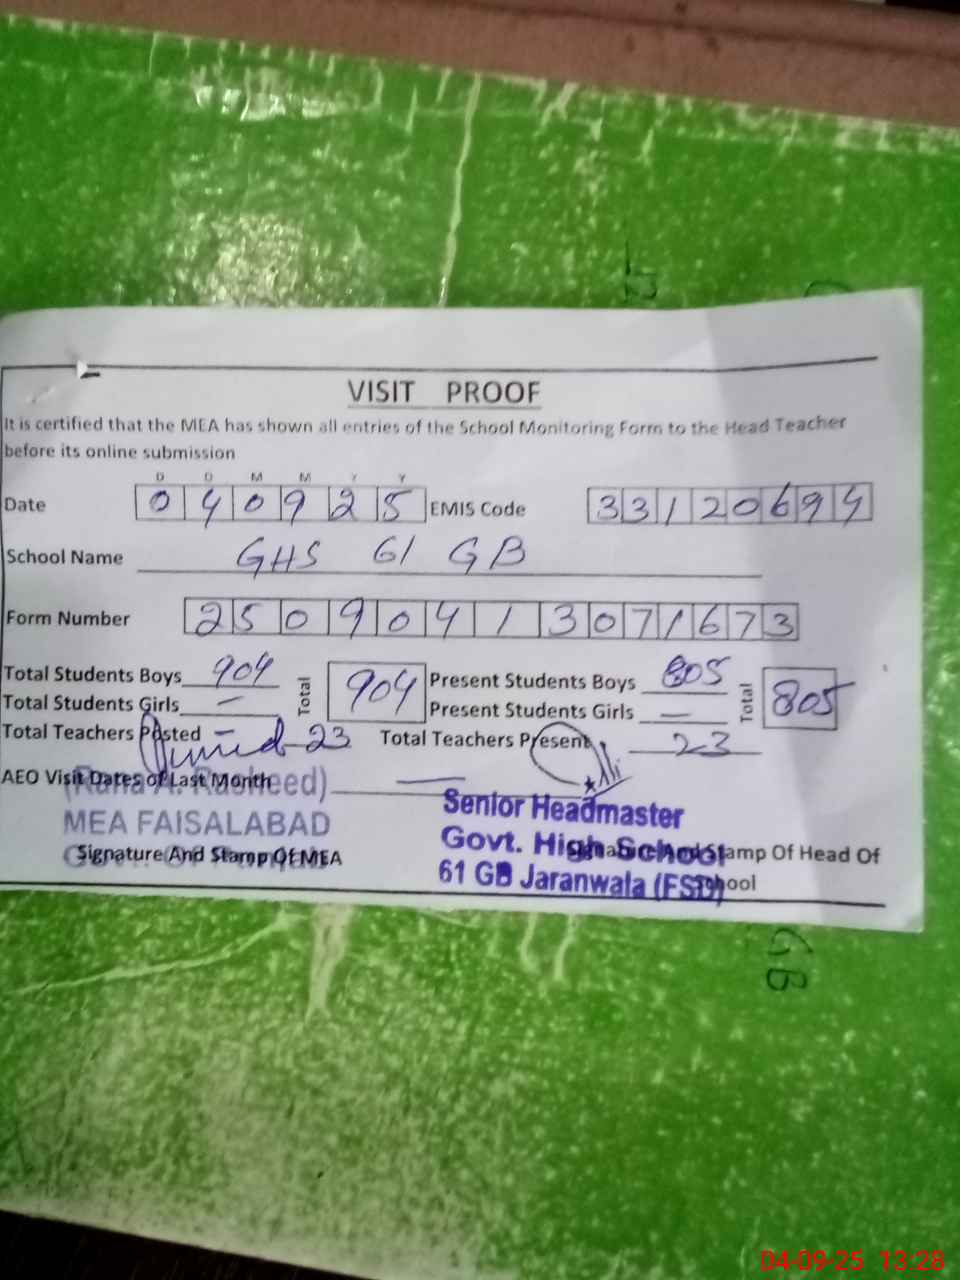 VISIT PROOF
It is certified that the MEA has shown all entries of the School Monitoring Form to the Head Teacher
before its online submission
D D M M Y Y
Date 040925 EMIS Code 33120694
School Name GHS 61 GB
Form Number 25090413071673
Total Students Boys 904 Total 904 Present Students Boys 805 Total 805
Total Students Girls — Present Students Girls —
Total Teachers Posted 23 Total Teachers Present 23
AEO Visit Dates of Last Month —
(Rana A. Rasheed)
MEA FAISALABAD
Signature And Stamp Of MEA
Senior Headmaster
Govt. High School
61 GB Jaranwala (FSD)
Stamp Of Head Of
School
GB
04-09-25 13:28